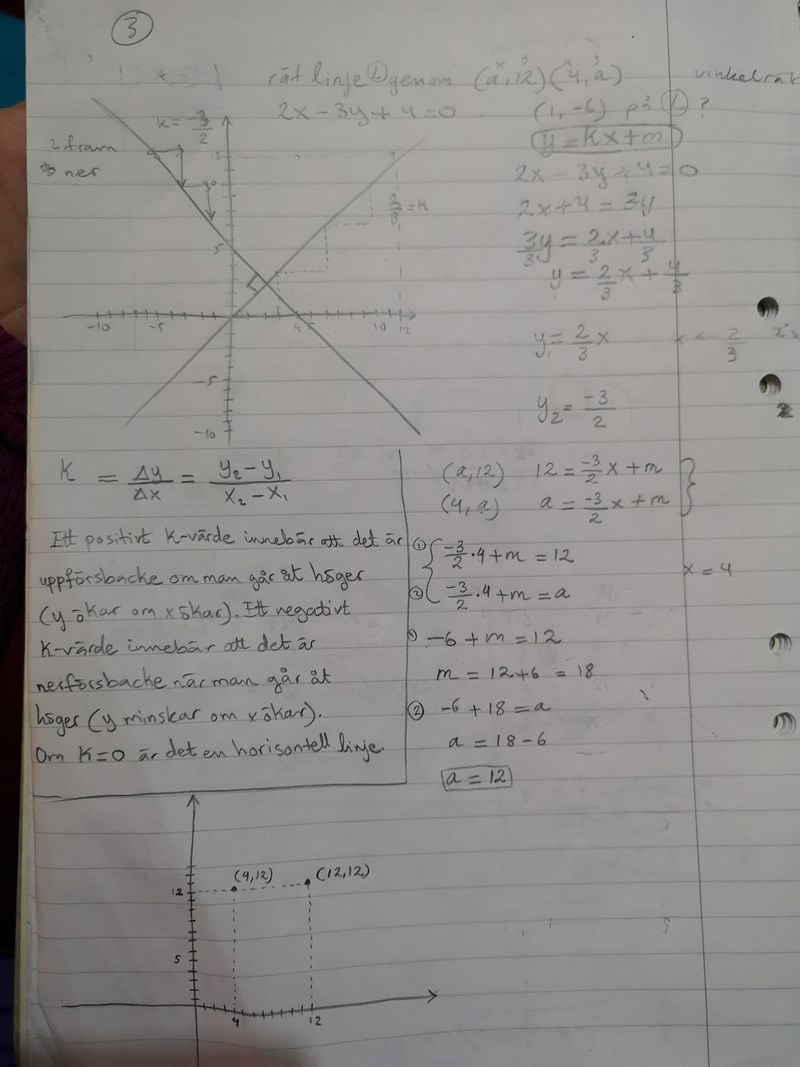 3
rät linje L genom (a,12) (4,a) vinkelrät
x y x y
2x - 3y + 4 = 0 (1,-6) på L ?
y = kx + m
k = -3/2
2 fram
3 ner
2x - 3y + 4 = 0
2x + 4 = 3y
3y/3 = 2x/3 + 4/3
y = 2/3 x + 4/3
2/3 = k
12
5
-10 -5 4 10 12
-5
-10
y₁ = 2/3 x
2/3
y₂ = -3/2
2
K = Δy/Δx = y₂ - y₁/x₂ - x₁
Ett positivt K-värde innebär att det är
uppförsbacke om man går åt höger
(y ökar om x ökar). Ett negativt
K-värde innebär att det är
nerförsbacke när man går åt
höger (y minskar om x ökar).
Om K=0 är det en horisontell linje.
(a,12) 12 = -3/2 x + m
(4,a) a = -3/2 x + m
① -3/2 · 4 + m = 12
x = 4
② -3/2 · 4 + m = a
① -6 + m = 12
m = 12+6 = 18
② -6 + 18 = a
a = 18 - 6
a = 12
(4,12) (12,12)
12
5
4 12